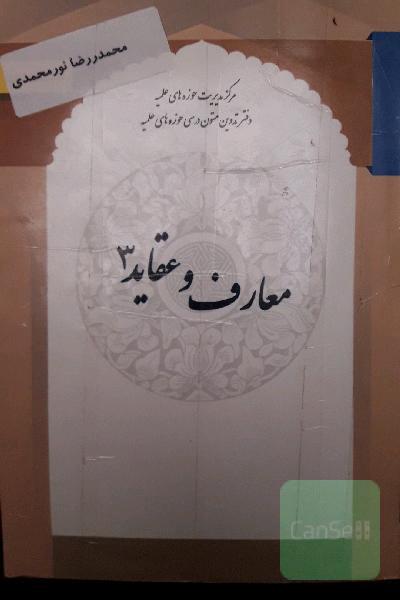 محمدرضا نورمحمدی
مرکز مدیریت حوزه های علمیه
دفتر تدوین متون درسی حوزه های علمیه
معارف و عقاید ۳
CanSell